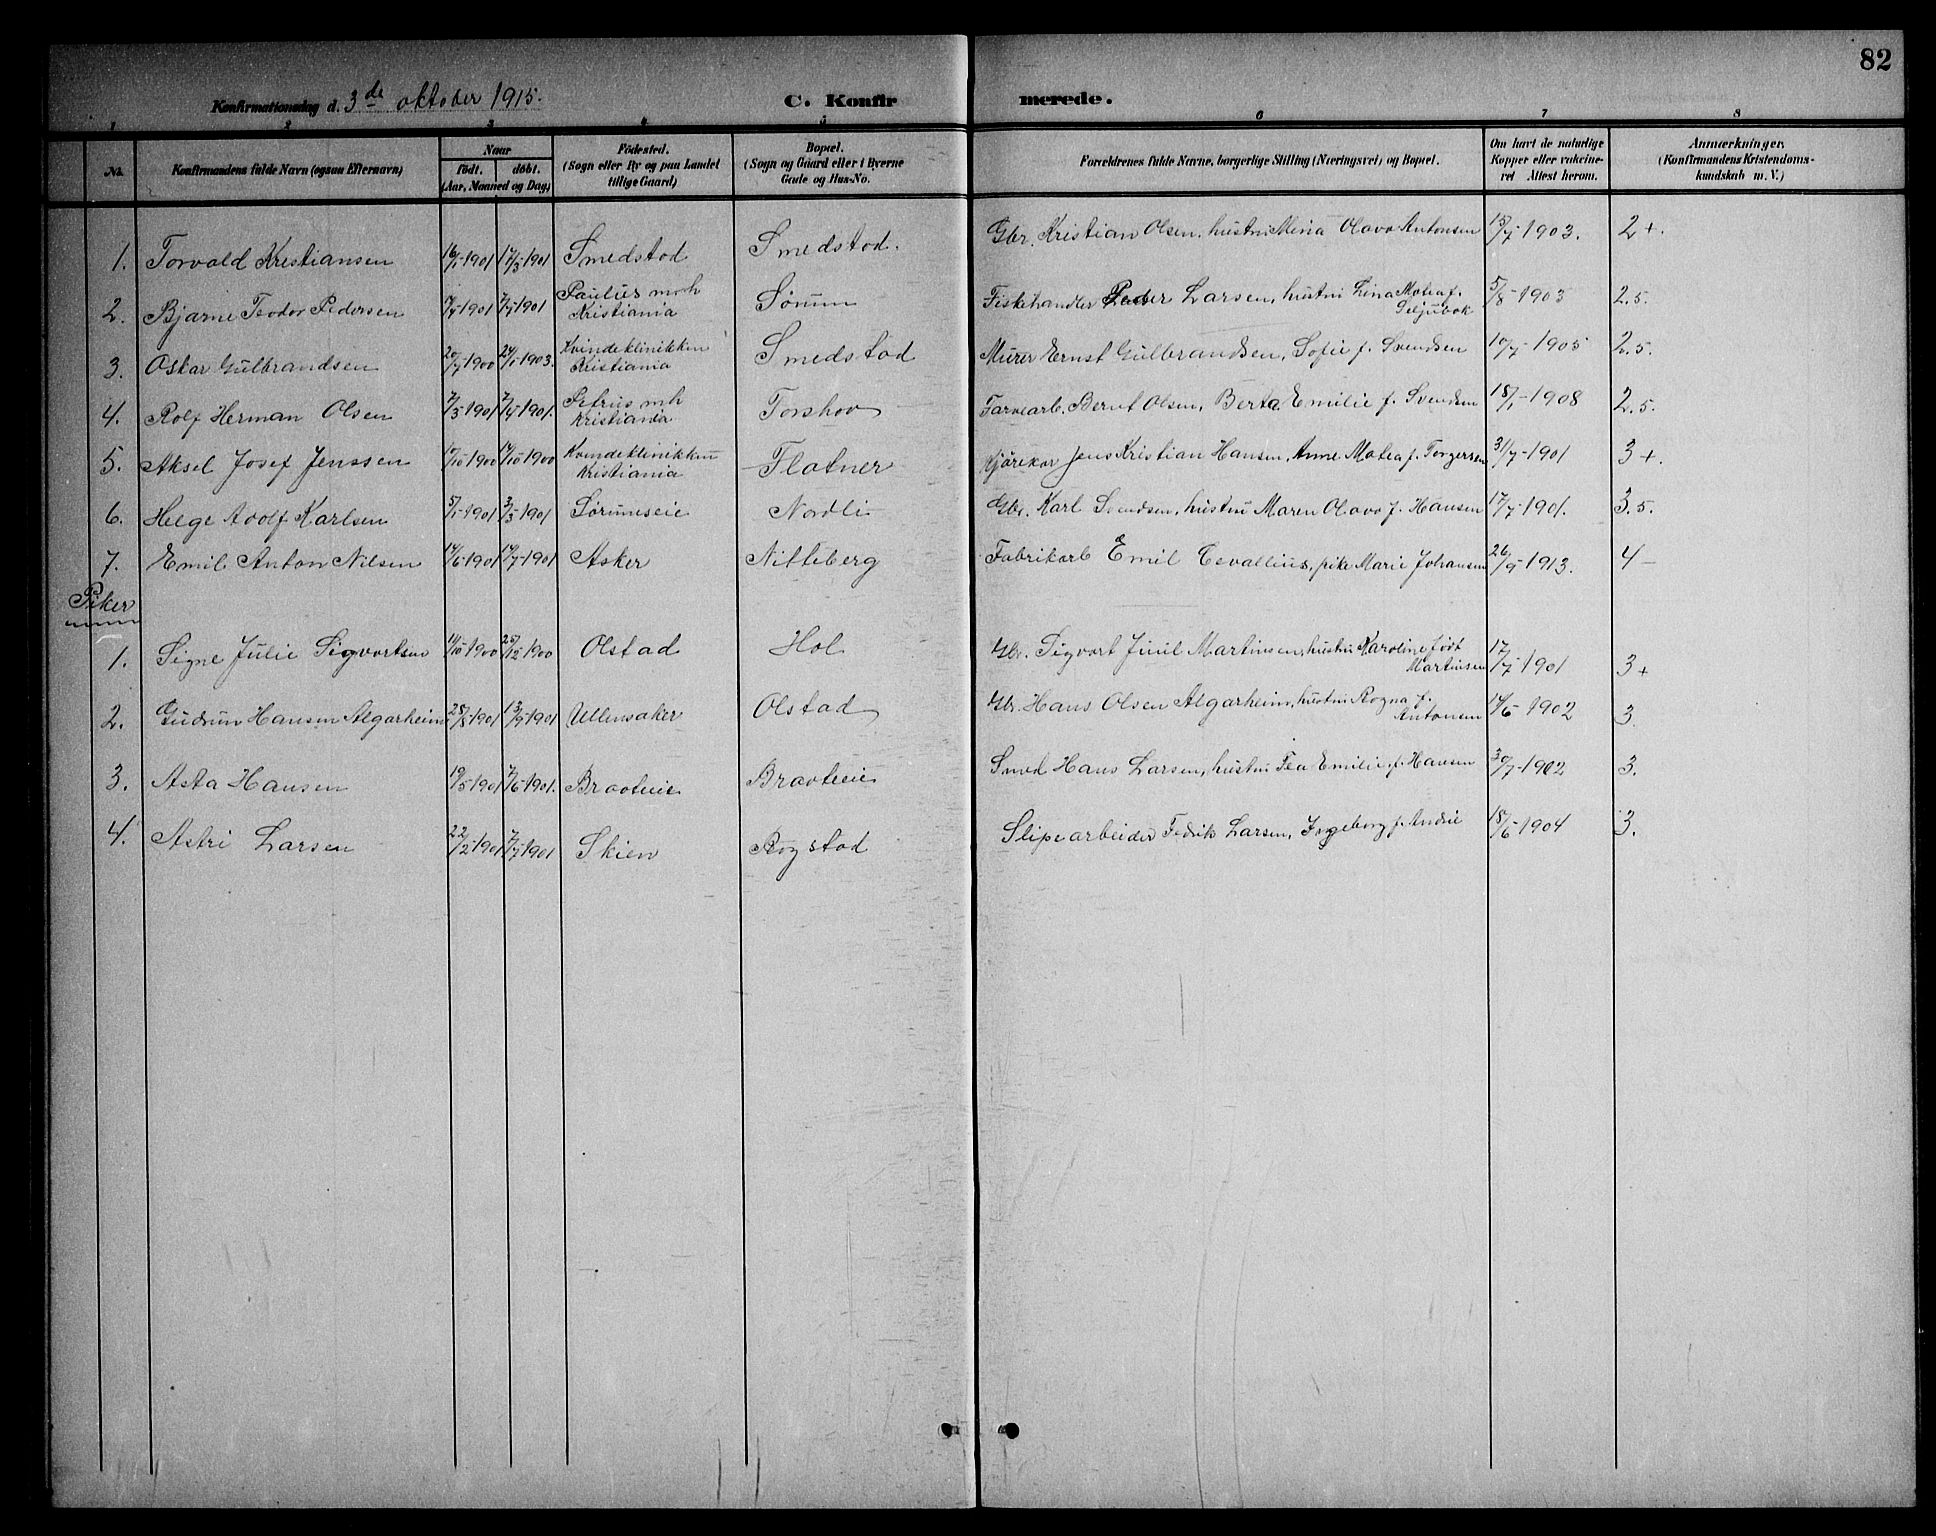 82
Konfirmationsdag d. 3de oktober 1915. C. Konfirmerede.
1 2 3 4 5 6 7 8
No. Konfirmandens fulde Navn (ogsaa Efternavn) Naar født. døbt. (Aar, Maaned og Dag) Fødested. (Sogn eller By og paa Landet tillige Gaard) Bopæl. (Sogn og Gaard eller i Byerne Gade og Hus-No. Forældrenes fulde Navne, borgerlige Stilling (Næringsvei) og Bopæl. Om havt de naturlige Kopper eller vakcineret Attest herom. Anmærkninger. (Konfirmandens Kristendomskundskab m. V.)
1. Torvald Kristiansen 16/1-1901 17/3-1901 Smedstad Smedstad. Gbr. Kristian Olsen, hustru Mina Olava Antonsen 15/7-1903. 2+.
2. Bjarne Teodor Pedersen 1901 1901 Paulus mh Kristiania Sørum Fiskehandler Peder Larsen, hustru Lina Matea f. 5/8-1903 2.5.
3. Oskar Gulbrandsen 20/7-1900 24/1-1903. Kvindeklinikken Kristiania Smedstad Murer Ernst Gulbrandsen, Sofie f. Svendsen 1905 2.5.
4. Rolf Herman Olsen 1901 1901. Petrus mh Kristiania Torshov Farvearb. Bernt Olsen, Berta Emilie f. Svendsen 18/1-1908 2.5.
5. Aksel Josef Jenssen 1900 1900 Kvindeklinikken Kristiania Flatner Kjørekar Jens Kristian Hansen, Anne Matea f. Torgersen 31/7-1901 3+.
6. Helge Adolf Karlsen 5/1-1901 3/3-1901 Sørumseie Nordli Gbr. Karl Svendsen, hustru Maren Olava f. Hansen 17/7-1901. 3.5.
7. Emil Anton Nilsen 14/6-1901 14/7-1901 Asker Nitteberg Fabrikarb Emil Cevallius, pike Marie Johansen 26/9-1913. 4-
Piker
1. Signe Julie Sigvartsen 1900 26/12-1900 Olstad Hol Gbr. Sigvart Juul Martinsen, hustru Karoline født Martinsen 17/7-1901 3+
2. Gudrun Hansen Algarheim 28/8-1901 13/9-1901 Ullensaker Olstad Gbr. Hans Olsen Algarheim, hustru Ragna f. Antonsen 14/6-1902 3.
3. Asta Hansen 19/5-1901 7/6-1901. Braateeie Braateeie Smed Hans Larsen, hustru Tea Emilie f. Hansen 30/7-1902 3.
4. Astri Larsen 22/2-1901 7/7-1901 Skien Rogstad Sliperarbeider Fedrik Larsen, Ingeborg f. 18/6-1904 3.